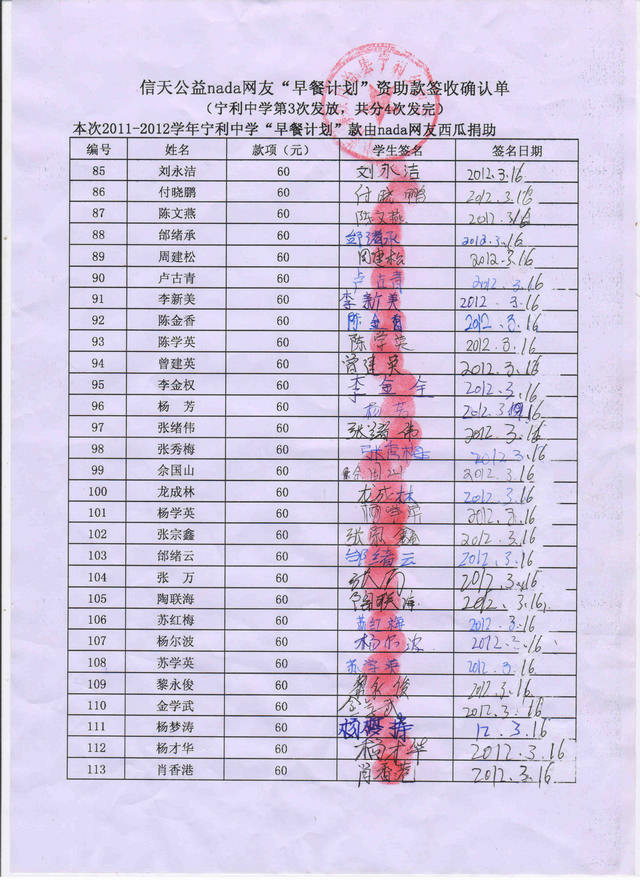 信天公益nada网友“早餐计划”资助款签收确认单
（宁利中学第3次发放，共分4次发完）
本次2011-2012学年宁利中学“早餐计划”款由nada网友西瓜捐助
编号 姓名 款项（元） 学生签名 签名日期
85 刘永洁 60 刘永洁 2012.3.16
86 付晓鹏 60 付晓鹏 2012.3.16
87 陈文燕 60 陈文燕 2012.3.16
88 邰绪承 60 邰绪承 2012.3.16
89 周建松 60 周建松 2012.3.16
90 卢古青 60 卢古青 2012.3.16
91 李新美 60 李新美 2012.3.16
92 陈金香 60 陈金香 2012.3.16
93 陈学英 60 陈学英 2012.3.16
94 曾建英 60 曾建英 2012.3.16
95 李金权 60 李金全 2012.3.16
96 杨 芳 60 杨芳 2012.3.16
97 张绪伟 60 张绪伟 2012.3.16
98 张秀梅 60 张秀梅 2012.3.16
99 佘国山 60 2012.3.16
100 龙成林 60 龙成林 2012.3.16
101 杨学英 60 2012.3.16
102 张宗鑫 60 张宗鑫 2012.3.16
103 邰绪云 60 邰绪云 2012.3.16
104 张 万 60 张万 2012.3.16
105 陶联海 60 陶联海 2012.3.16
106 苏红梅 60 苏红梅 2012.3.16
107 杨尔波 60 杨尔波 2012.3.16
108 苏学英 60 苏学英 2012.3.16
109 黎永俊 60 黎永俊 2012.3.16
110 金学武 60 金学武 2012.3.16
111 杨梦涛 60 杨梦涛 12.3.16
112 杨才华 60 杨才华 2012.3.16
113 肖香港 60 肖香港 2012.3.16